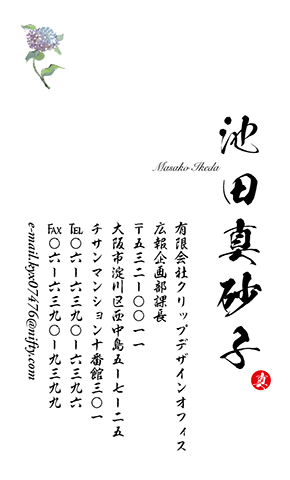 池田真砂子
Masako Ikeda
真
有限会社クリップデザインオフィス
広報企画部課長
〒五三二ー〇〇一一
大阪市淀川区西中島五ー七ー二五
チサンマンション十番館三〇一
TEL〇六ー六三九〇ー六三九六
FAX〇六ー六三九〇ー九三九九
e-mail.kyx07476@nifty.com